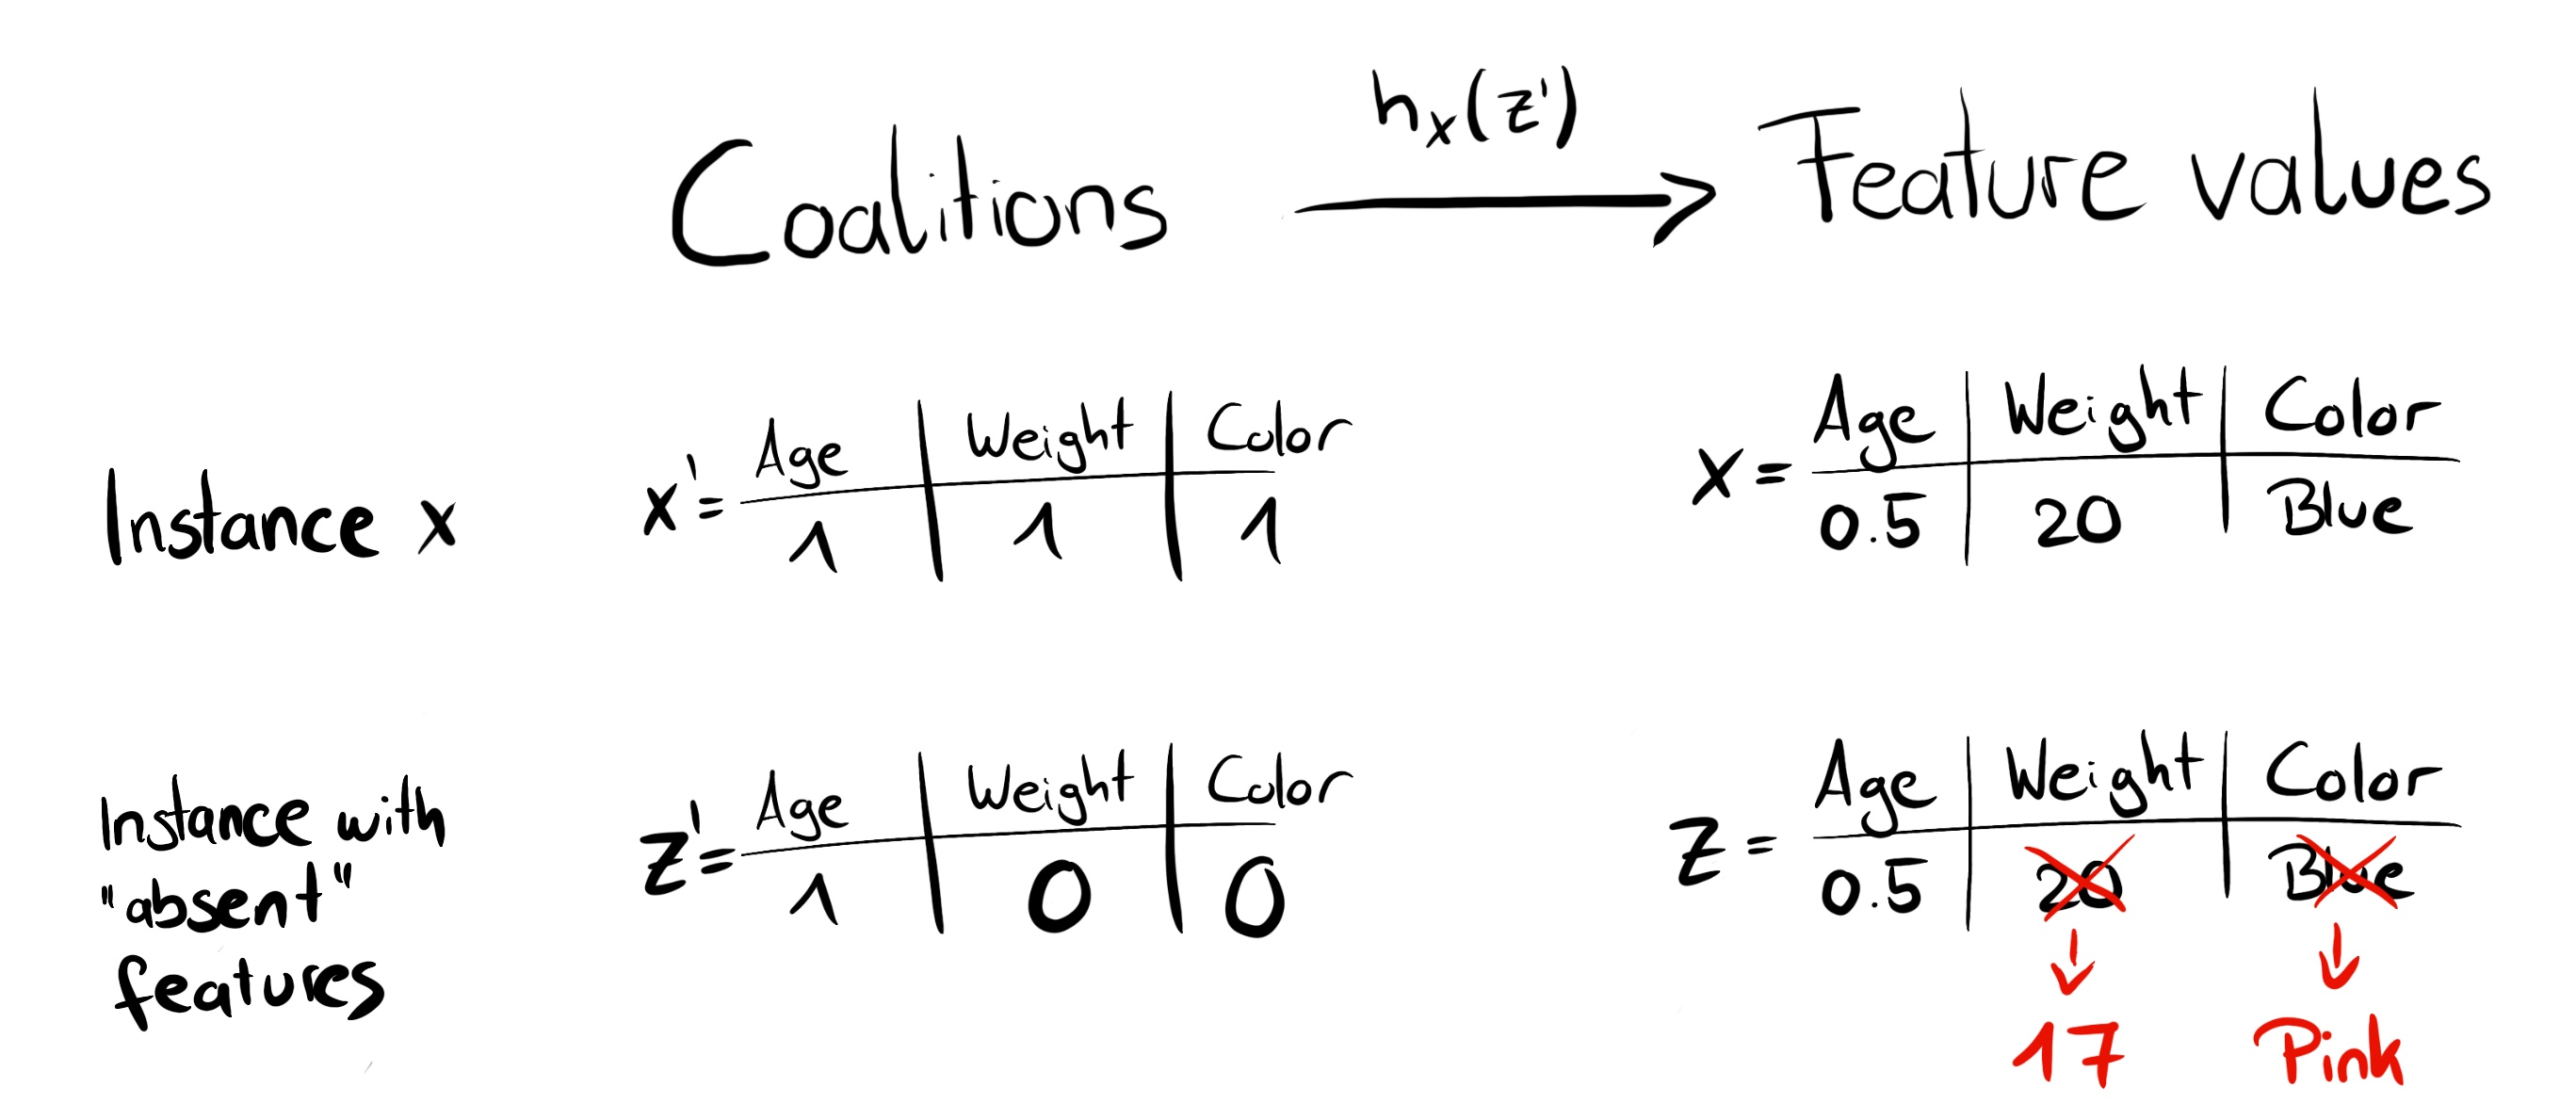 Coalitions hx(z') Feature values
Instance x
x'= Age Weight Color
1 1 1
x= Age Weight Color
0.5 20 Blue
Instance with
"absent"
features
z'= Age Weight Color
1 0 0
z= Age Weight Color
0.5 20 Blue
17 Pink